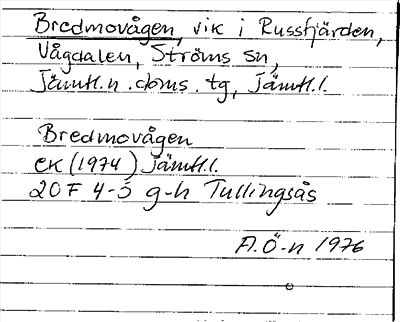 Bredmovågen, vik i Russfjärden,
Vågdalen, Ströms sn,
Jämtl.n.doms.tg, Jämtl.l.
Bredmovågen
EK (1974) Jämtl.l.
20F 4-5 g-h Tullingsås
A.Ö-n 1976